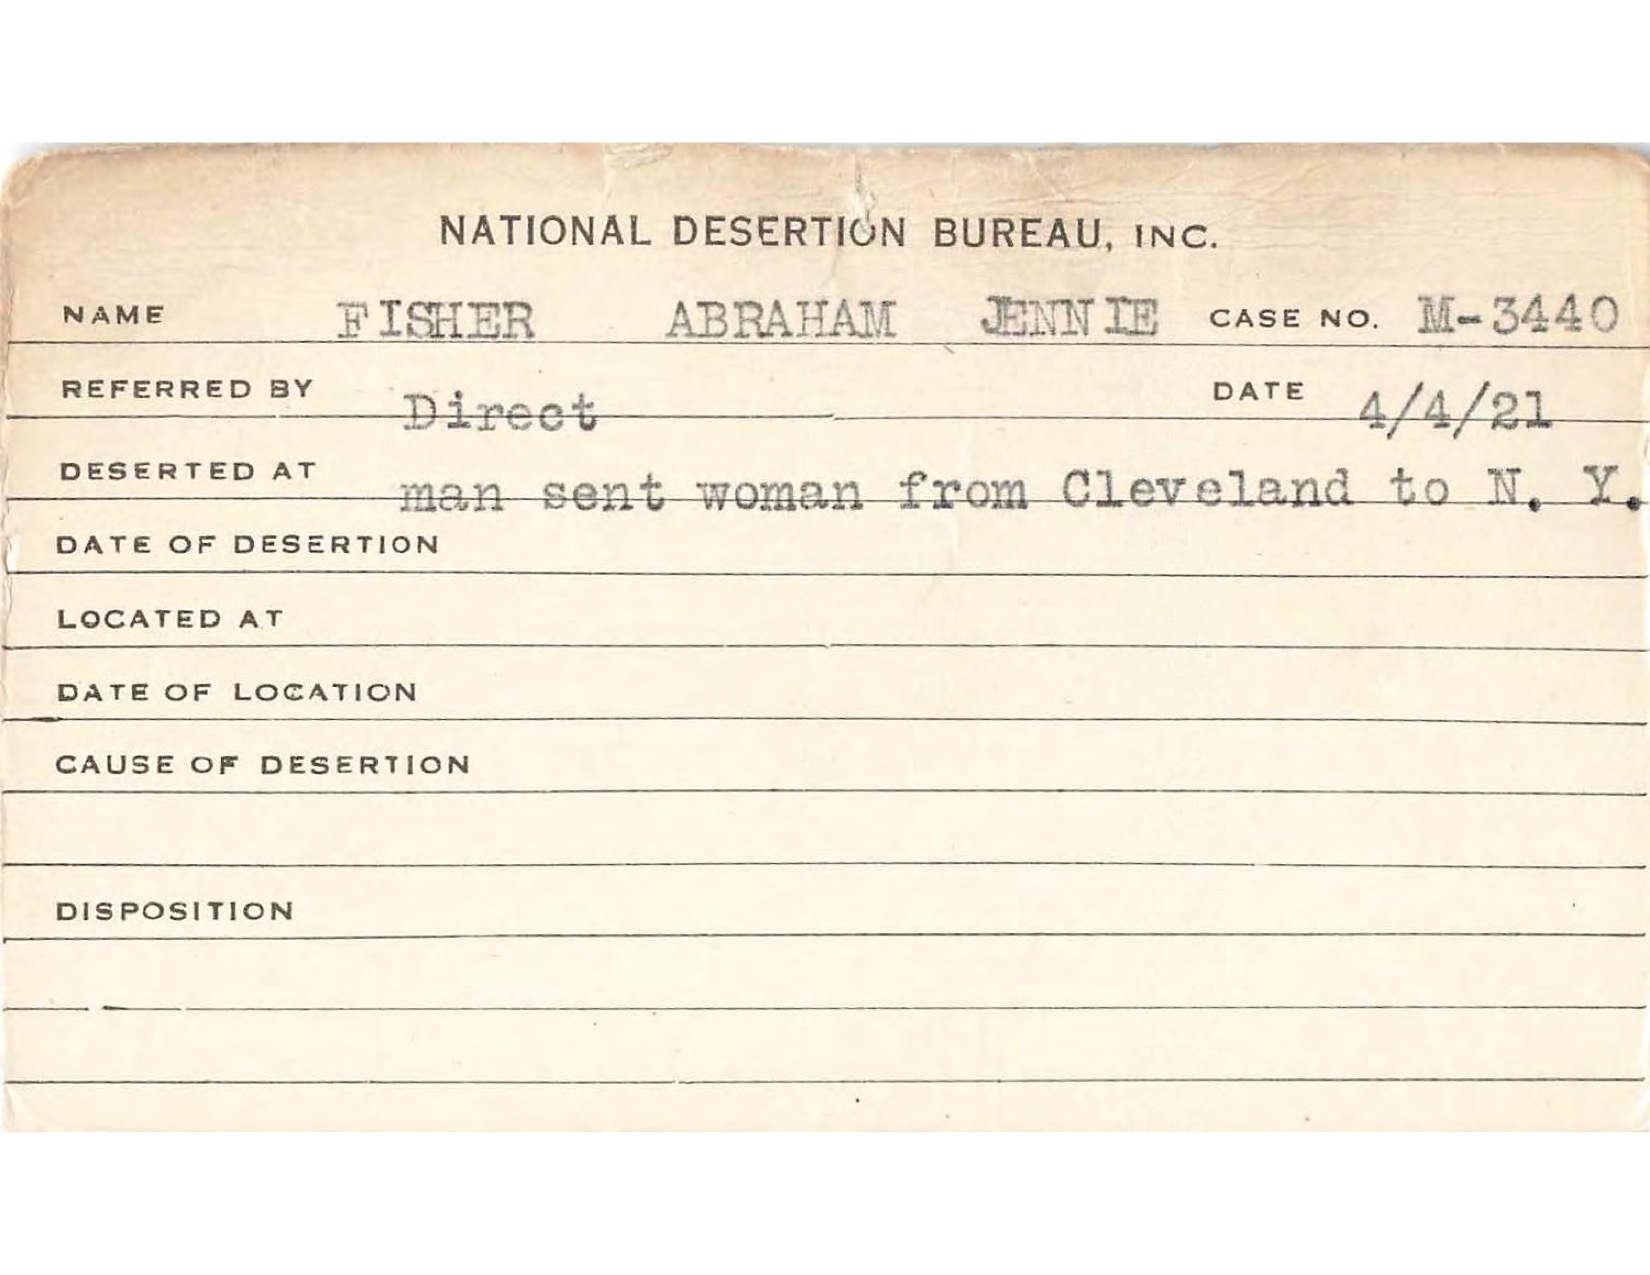 NATIONAL DESERTION BUREAU, INC.
NAME FISHER ABRAHAM JENNIE CASE NO. M-3440
REFERRED BY Direct DATE 4/4/21
DESERTED AT man sent woman from Cleveland to N. Y.
DATE OF DESERTION
LOCATED AT
DATE OF LOCATION
CAUSE OF DESERTION
DISPOSITION